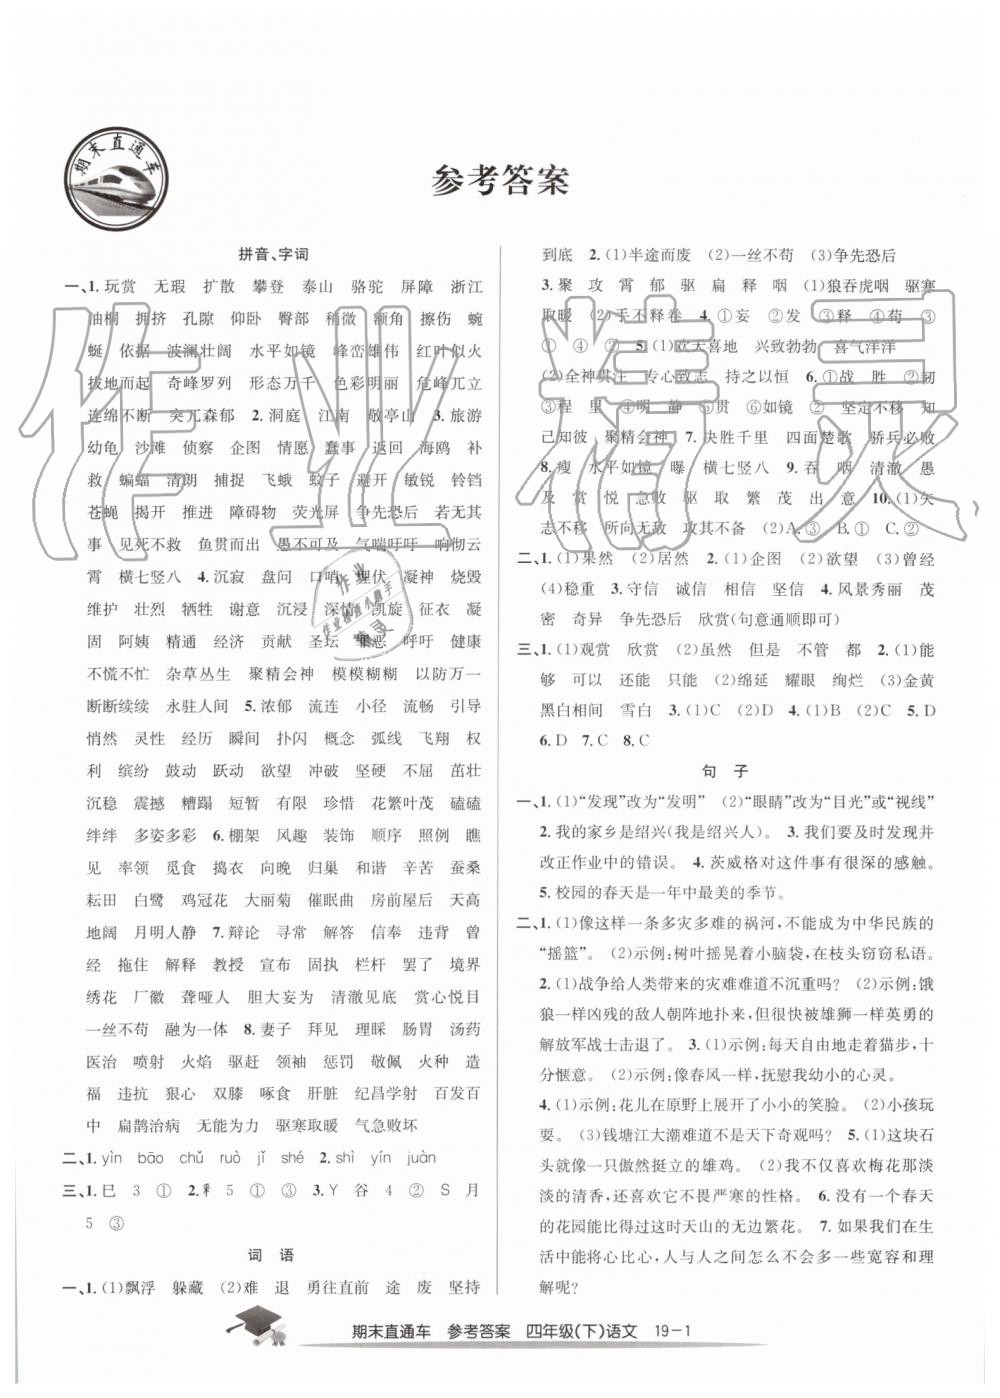 期末直通车
参考答案
拼音、字词
一、1.玩赏 无瑕 扩散 攀登 泰山 骆驼 屏障 浙江
油桐 拥挤 孔隙 仰卧 臀部 稍微 额角 擦伤 蜿
蜒 依据 波澜壮阔 水平如镜 峰峦雄伟 红叶似火
拔地而起 奇峰罗列 形态万千 色彩明丽 危峰兀立
连绵不断 突兀森郁 2.洞庭 江南 敬亭山 3.旅游
幼龟 沙滩 侦察 企图 情愿 蠢事 返回 海鸥 补
救 蝙蝠 清朗 捕捉 飞蛾 蚊子 避开 敏锐 铃铛
苍蝇 揭开 推进 障碍物 荧光屏 争先恐后 若无其
事 见死不救 鱼贯而出 愚不可及 气喘吁吁 响彻云
霄 横七竖八 4.沉寂 盘问 口哨 埋伏 凝神 烧毁
维护 壮烈 牺牲 谢意 沉浸 深情 凯旋 征衣 凝
固 阿姨 精通 经济 贡献 圣坛 罪恶 呼吁 健康
不慌不忙 杂草丛生 聚精会神 模模糊糊 以防万一
断断续续 永驻人间 5.浓郁 流连 小径 流畅 引导
悄然 灵性 经历 瞬间 扑闪 概念 弧线 飞翔 权
利 缤纷 鼓动 跃动 欲望 冲破 坚硬 不屈 茁壮
沉稳 震撼 糟蹋 短暂 有限 珍惜 花繁叶茂 磕磕
绊绊 多姿多彩 6.棚架 风趣 装饰 顺序 照例 瞧
见 率领 觅食 捣衣 向晚 归巢 和谐 辛苦 蚕桑
耘田 白鹭 鸡冠花 大丽菊 催耕 房前屋后 天高
地阔 月明人静 7.辩论 寻常 解答 信奉 违背 曾
经 拖住 解释 教授 宣布 固执 栏杆 罢了 境界
绣花 厂徽 聋哑人 胆大妄为 清澈见底 赏心悦目
一丝不苟 融为一体 8.妻子 拜见 理睬 肠胃 汤药
医治 喷射 火焰 驱赶 领袖 惩罚 敬佩 火种 造
福 违抗 狠心 双膝 啄食 肝脏 纪昌学射 百发百
中 扁鹊治病 无能为力 驱寒取暖 气急败坏
二、1.yìn bāo chǔ ruò jǐ shé 2.shì yín juàn
三、1.巳 3 ① 2.釆 5 ① ③ 3.Y 谷 4 ② S 月
5 ③
词 语
一、1.(1)飘浮 躲藏 (2)难 退 勇往直前 途 废 坚持
到底 2.(1)半途而废 (2)一丝不苟 (3)争先恐后
3.聚 攻 霄 郁 驱 扁 释 咽 (1)狼吞虎咽 驱寒
取暖 (2)手不释卷 4.①妄 ②发 ③释 ④苟 ③
① ④ ② 5.(1)欢天喜地 兴致勃勃 喜气洋洋
(2)全神贯注 专心致志 持之以恒 6.①战 胜 ②韧
③程 里 ④明 静 ⑤贯 ⑥如镜 ② 坚定不移 知
己知彼 聚精会神 7.决胜千里 四面楚歌 骄兵必败
8.瘦 水平如镜 曝 横七竖八 9.吞 咽 清澈 愚
及 赏 悦 急败 驱 取 繁 茂 出 意 10.(1)矢
志不移 所向无敌 攻其不备 (2)A.③ B.① C.②
二、1.(1)果然 (2)居然 2.(1)企图 (2)欲望 (3)曾经
(4)稳重 3.守信 诚信 相信 坚信 4.风景秀丽 茂
密 奇异 争先恐后 欣赏(句意通顺即可)
三、1.(1)观赏 欣赏 (2)虽然 但是 不管 都 2.(1)能
够 可以 还能 只能 (2)绵延 耀眼 绚烂 (3)金黄
黑白相间 雪白 3.(1)C (2)D 4.(1)B (2)C 5.D
6.D 7.C 8.C
句 子
一、1.(1)“发现”改为“发明” (2)“眼睛”改为“目光”或“视线”
2.我的家乡是绍兴(我是绍兴人)。 3.我们要及时发现并
改正作业中的错误。 4.茨威格对这件事有很深的感触。
5.校园的春天是一年中最美的季节。
二、1.(1)像这样一条多灾多难的祸河,不能成为中华民族的
“摇篮”。 (2)示例:树叶摇晃着小脑袋,在枝头窃窃私语。
2.(1)战争给人类带来的灾难难道不沉重吗? (2)示例:饿
狼一样凶残的敌人朝阵地扑来,但很快就被雄狮一样英勇的
解放军战士击退了。 3.(1)示例:每天自由地走着猫步,十
分惬意。 (2)示例:像春风一样,抚慰我幼小的心灵。
4.(1)示例:花儿在原野上展开了小小的笑脸。 (2)小孩玩
耍。 (3)钱塘江大潮难道不是天下奇观吗? 5.(1)这块石
头就像一只傲然挺立的雄鸡。 (2)我不但喜欢梅花那淡
淡的清香,还喜欢它不畏严寒的性格。 6.没有一个春天
的花园能比得过这时天山的无边繁花。 7.如果我们在生
活中能将心比心,人与人之间怎么不会多一些宽容和理
解呢?
期末直通车 参考答案 四年级(下)语文 19－1
作业精灵